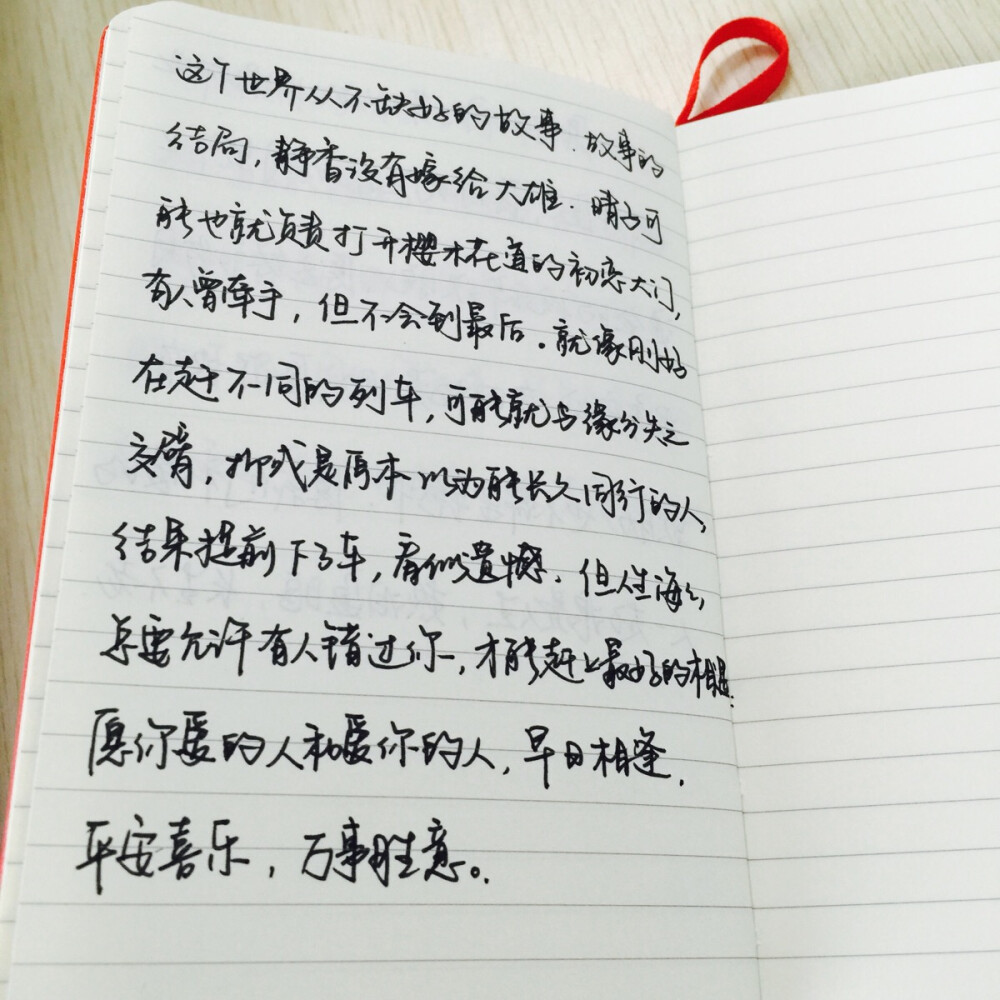 这个世界从不缺好的故事.故事的
结局,静香没有嫁给大雄.晴子可
能也就负责打开樱木花道的初恋大门,
有人曾牵手,但不会到最后。就像刚好
在赶不同的列车,可能就与缘分失之
交臂,抑或是原本以为能长久同行的人,
结果提前下了车,看似遗憾.但人生海海,
总要允许有人错过你,才能赶上最好的相遇.
愿你爱的人和爱你的人,早日相逢.
平安喜乐,万事胜意。.